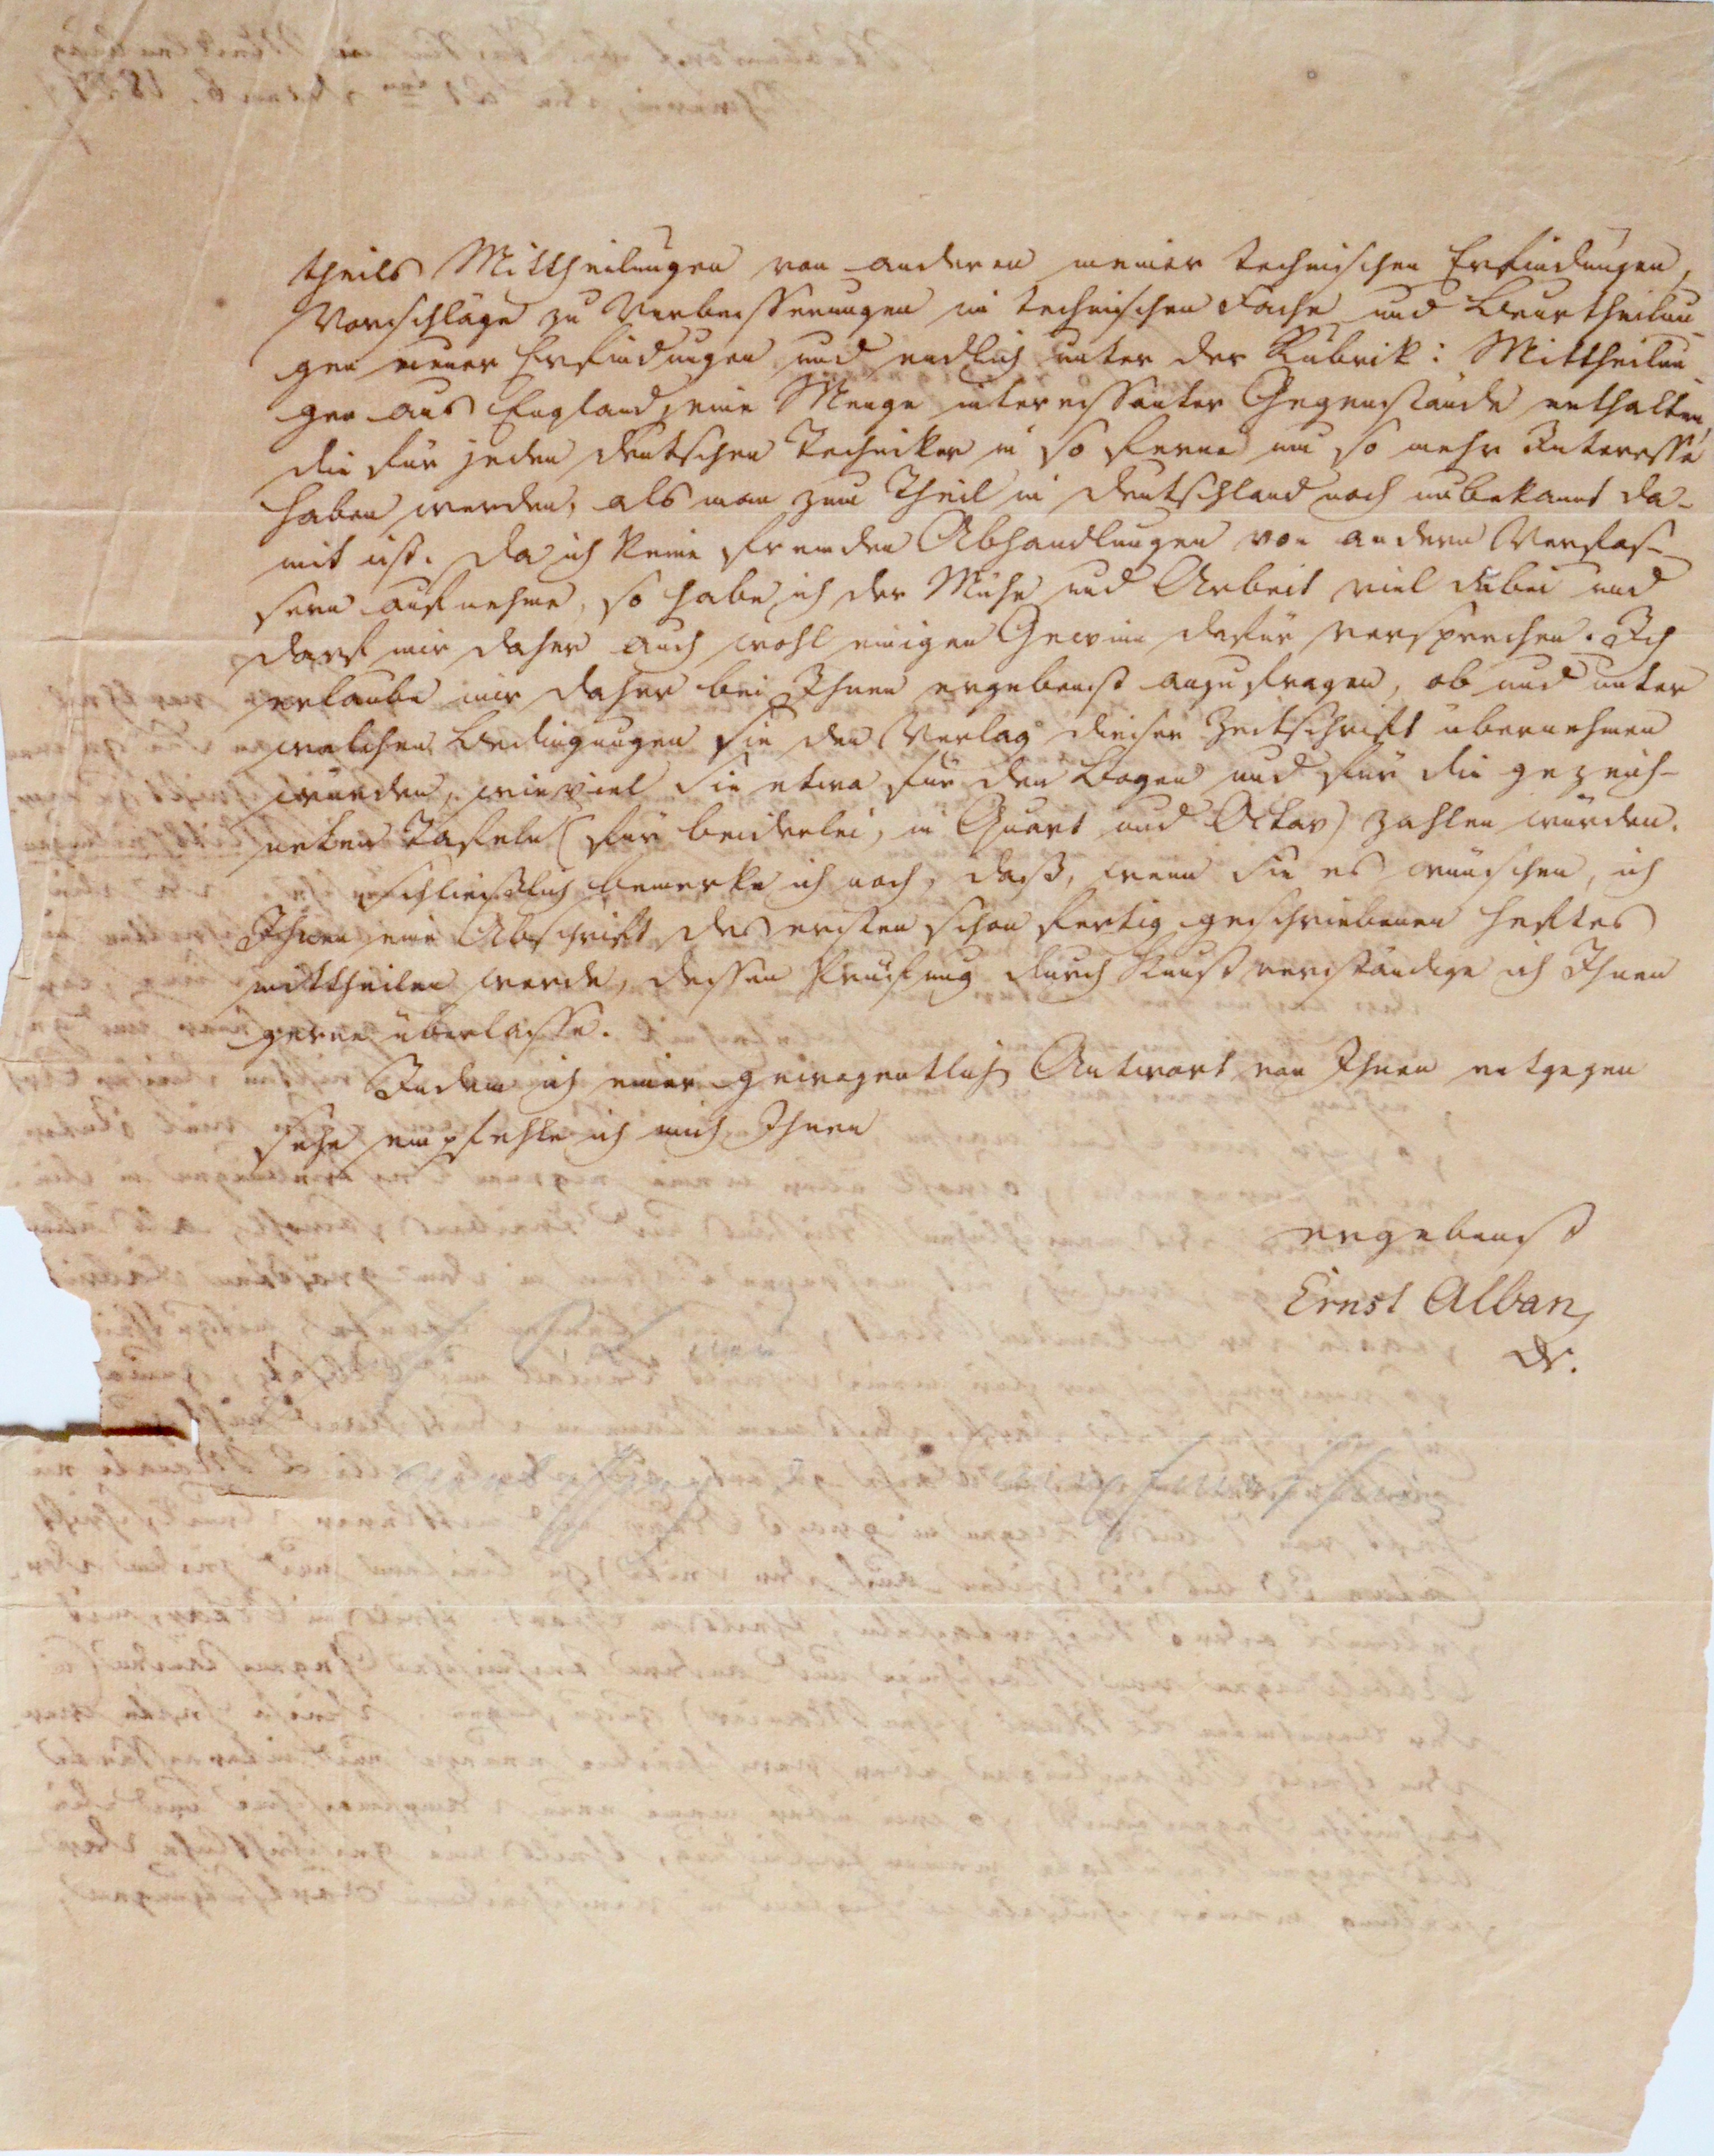 theils Mittheilungen von anderen meiner technischen Erfindungen,
Vorschläge zu Verbesserungen im technischen Fache und Beurtheilun-
gen neuer Erfindungen und endlich unter der Rubrik: Mittheilun-
gen aus England, eine Menge interessanter Gegenstände enthalten,
die für jeden deutschen Techniker in so ferne um so mehr Interesse
haben werden, als man zum Theil in Deutschland noch unbekannt da-
mit ist. Da ich keine fremden Abhandlungen von andern Verfas-
sern aufnehme, so habe ich der Mühe und Arbeit viel dabei und
darf mir daher auch wohl einigen Gewinn dafür versprechen. Ich
erlaube mir daher bei Ihnen ergebenst anzufragen, ob und unter
welchen Bedingungen Sie den Verlag dieser Zeitschrift übernehmen
würden, wieviel Sie etwa für den Bogen und für die gezeich-
neten Tafeln (für beiderlei, in Quart und Octav) zahlen würden.
Schließlich bemerke ich noch, daß, wenn Sie es wünschen, ich
Ihnen eine Abschrift des ersten schon fertig geschriebenen Heftes
mittheilen werde, dessen Prüfung durch Kunstverständige ich Ihnen
gerne überlasse.
Indem ich einer Antwort von Ihnen entgegen
sehe empfehle ich mich Ihnen
ergebenst
Ernst Alban,
Dr.